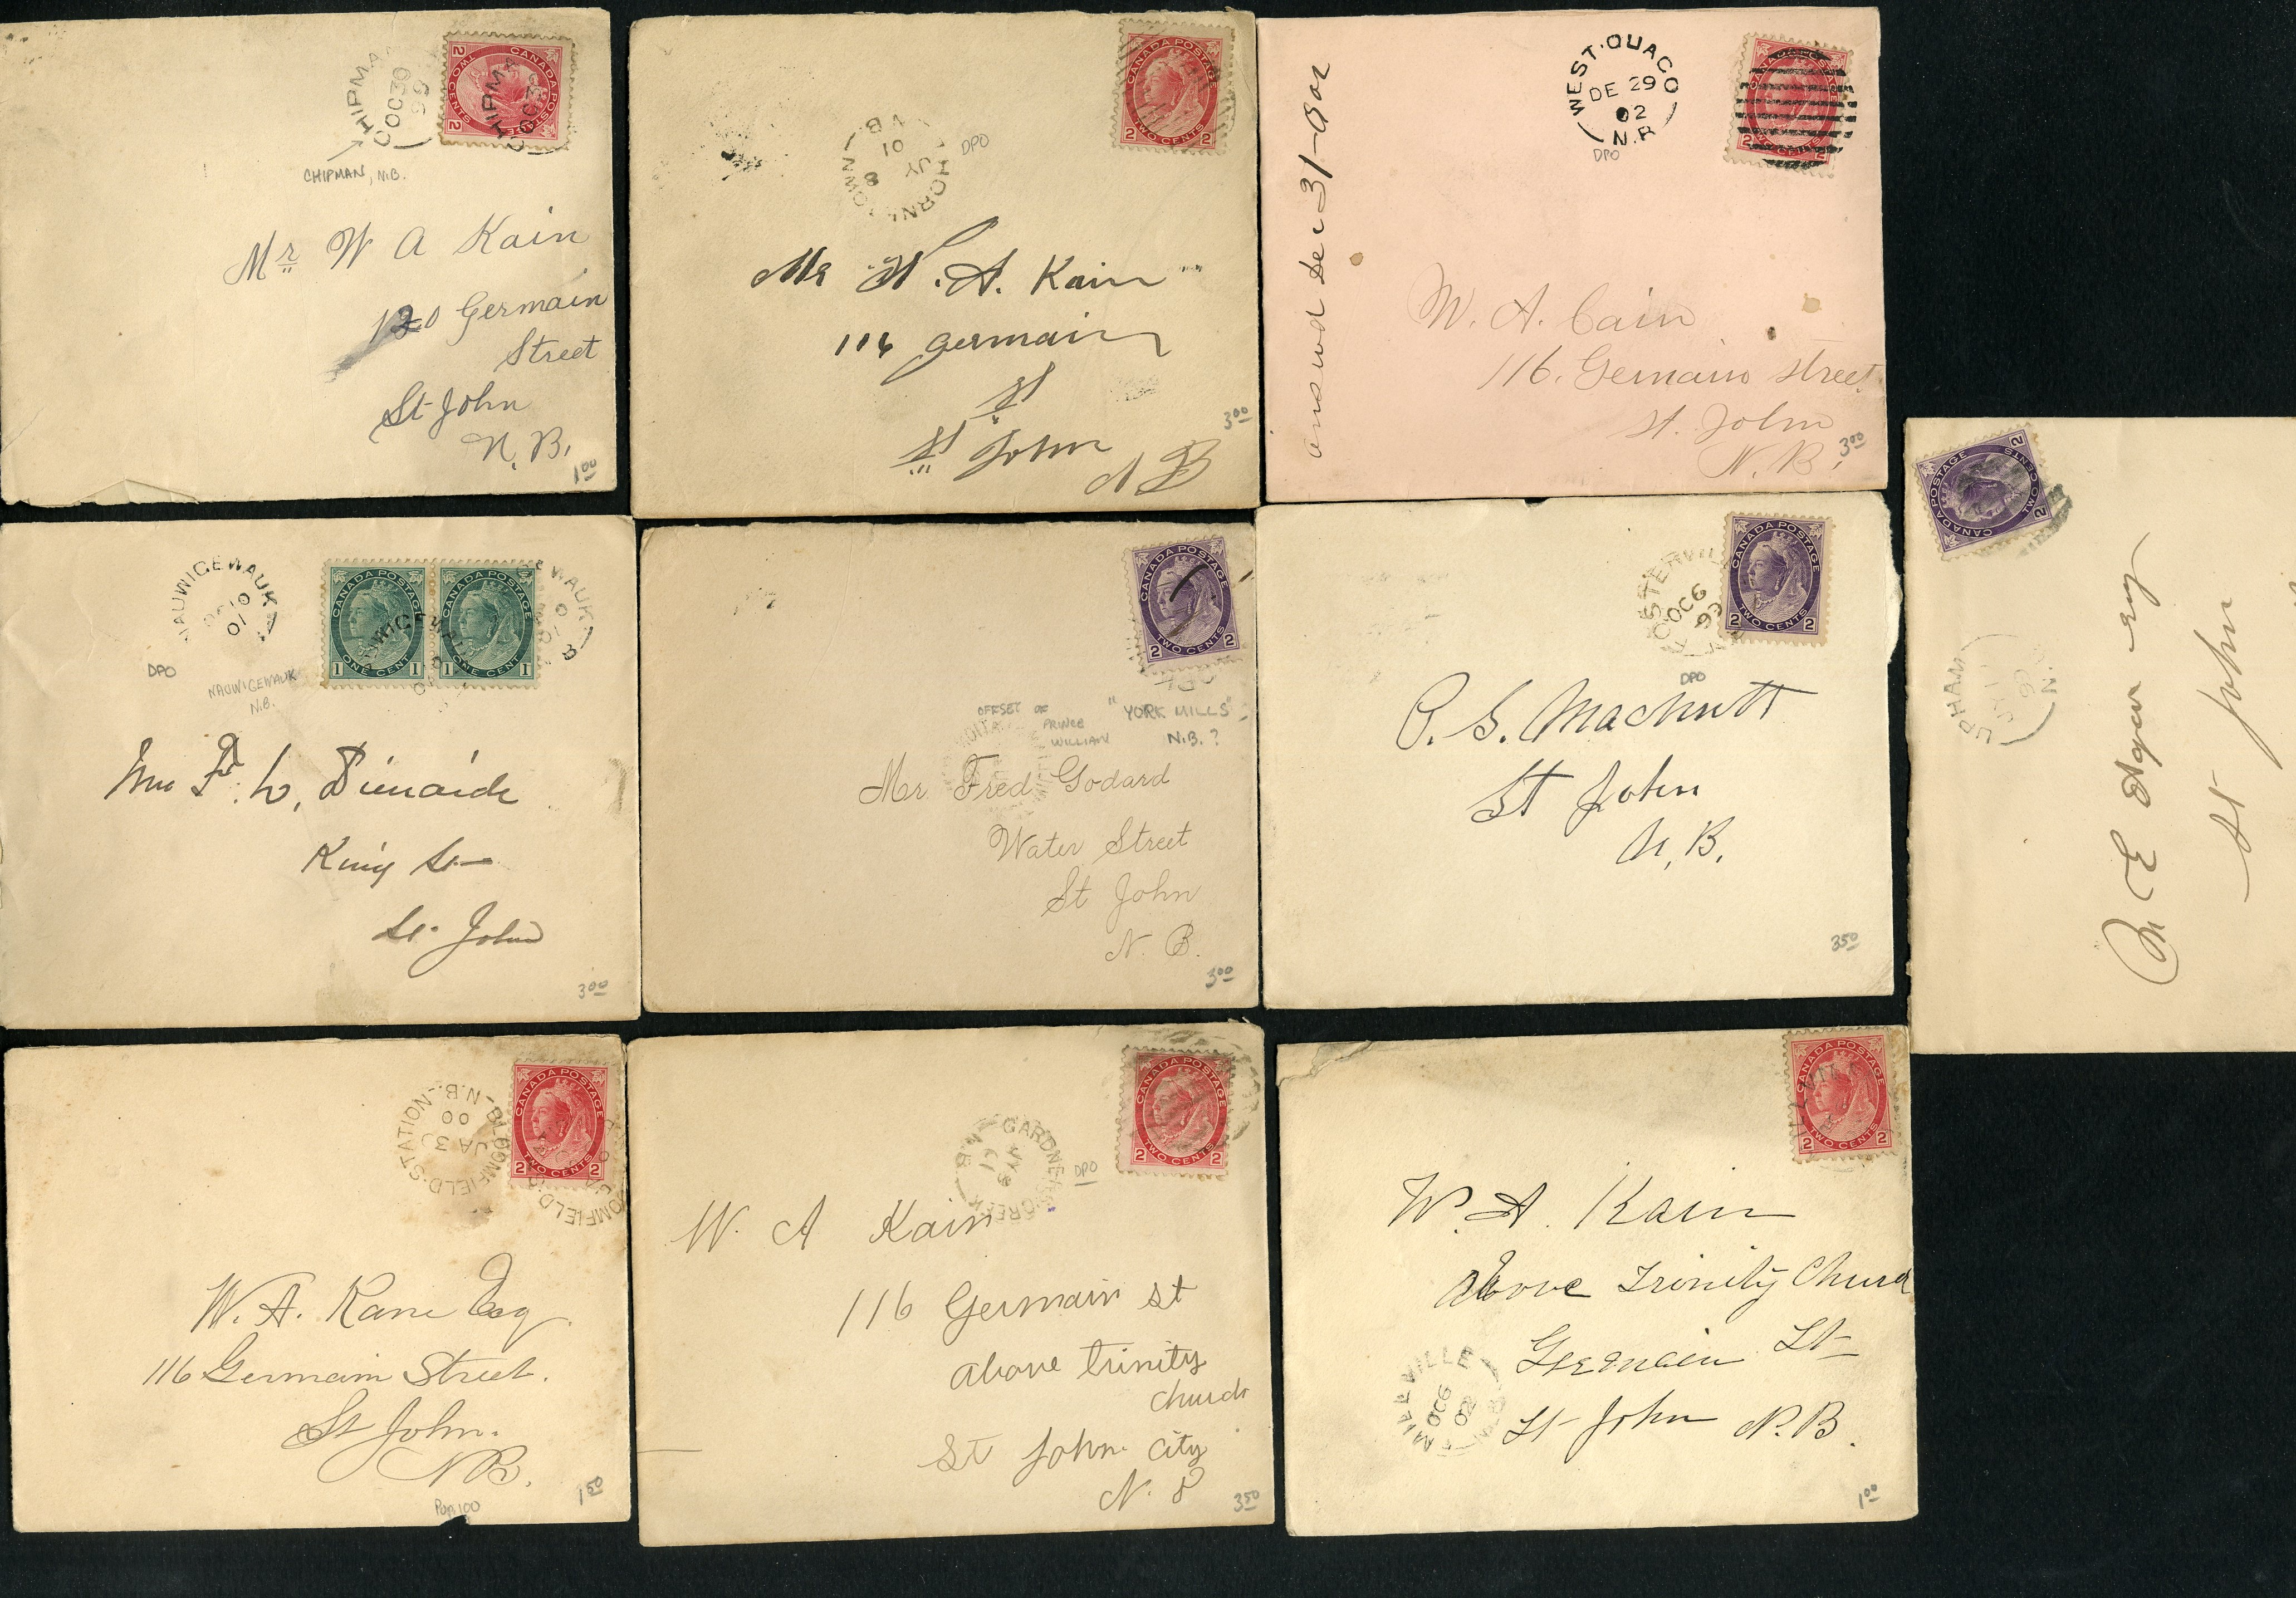 CHIPMA
OC 30
99
CANADA POSTAGE
TWO CENTS
2 2
CHIPMA
OC 3
CHIPMAN, N.B.
Mr W A Kain
120 Germain
Street
St John
N. B.
1 00
CANADA POSTAGE
TWO CENTS
2 2
JY 8
01
N.B
DPO
Mr W. A. Kain
116 germain
st
st John
N B
3 00
WEST·QUACO
DE 29
02
N.B
DPO
CANADA POSTAGE
TWO CENTS
2 2
answd Dec 31-02
W. A. Cain
116. Germain street
St. John
N. B.
3 00
NAUWIGEWAUK
01
DPO
NAUWIGEWAUK
N.B.
CANADA POSTAGE
ONE CENT
1 1
CANADA POSTAGE
ONE CENT
1 1
King St
St. John
3 00
CANADA POSTAGE
TWO CENTS
2 2
OFFSET OF
PRINCE
WILLIAM
"YORK MILLS"
N.B.?
Mr Fred Godard
Water Street
St John
N. B.
3 00
OC 6
99
CANADA POSTAGE
TWO CENTS
2 2
DPO
St John
N. B.
3 50
CANADA POSTAGE
TWO CENTS
2 2
UPHAM
St John
BLOOMFIELD·STATION·N.B
JA 3
00
CANADA POSTAGE
TWO CENTS
2 2
W. A. Kane Esq.
116 Germain Street.
St John.
N B.
Pop 100
1 50
GARDNER'S CREEK
N.B
DPO
CANADA POSTAGE
TWO CENTS
2 2
W. A Kain
116 Germain st
above trinity
church
St John city
N. B
3 50
CANADA POSTAGE
TWO CENTS
2 2
W. A. Kain
Above Trinity Church
Germain St
St John N. B.
MILLVILLE
OC 6
02
1 00